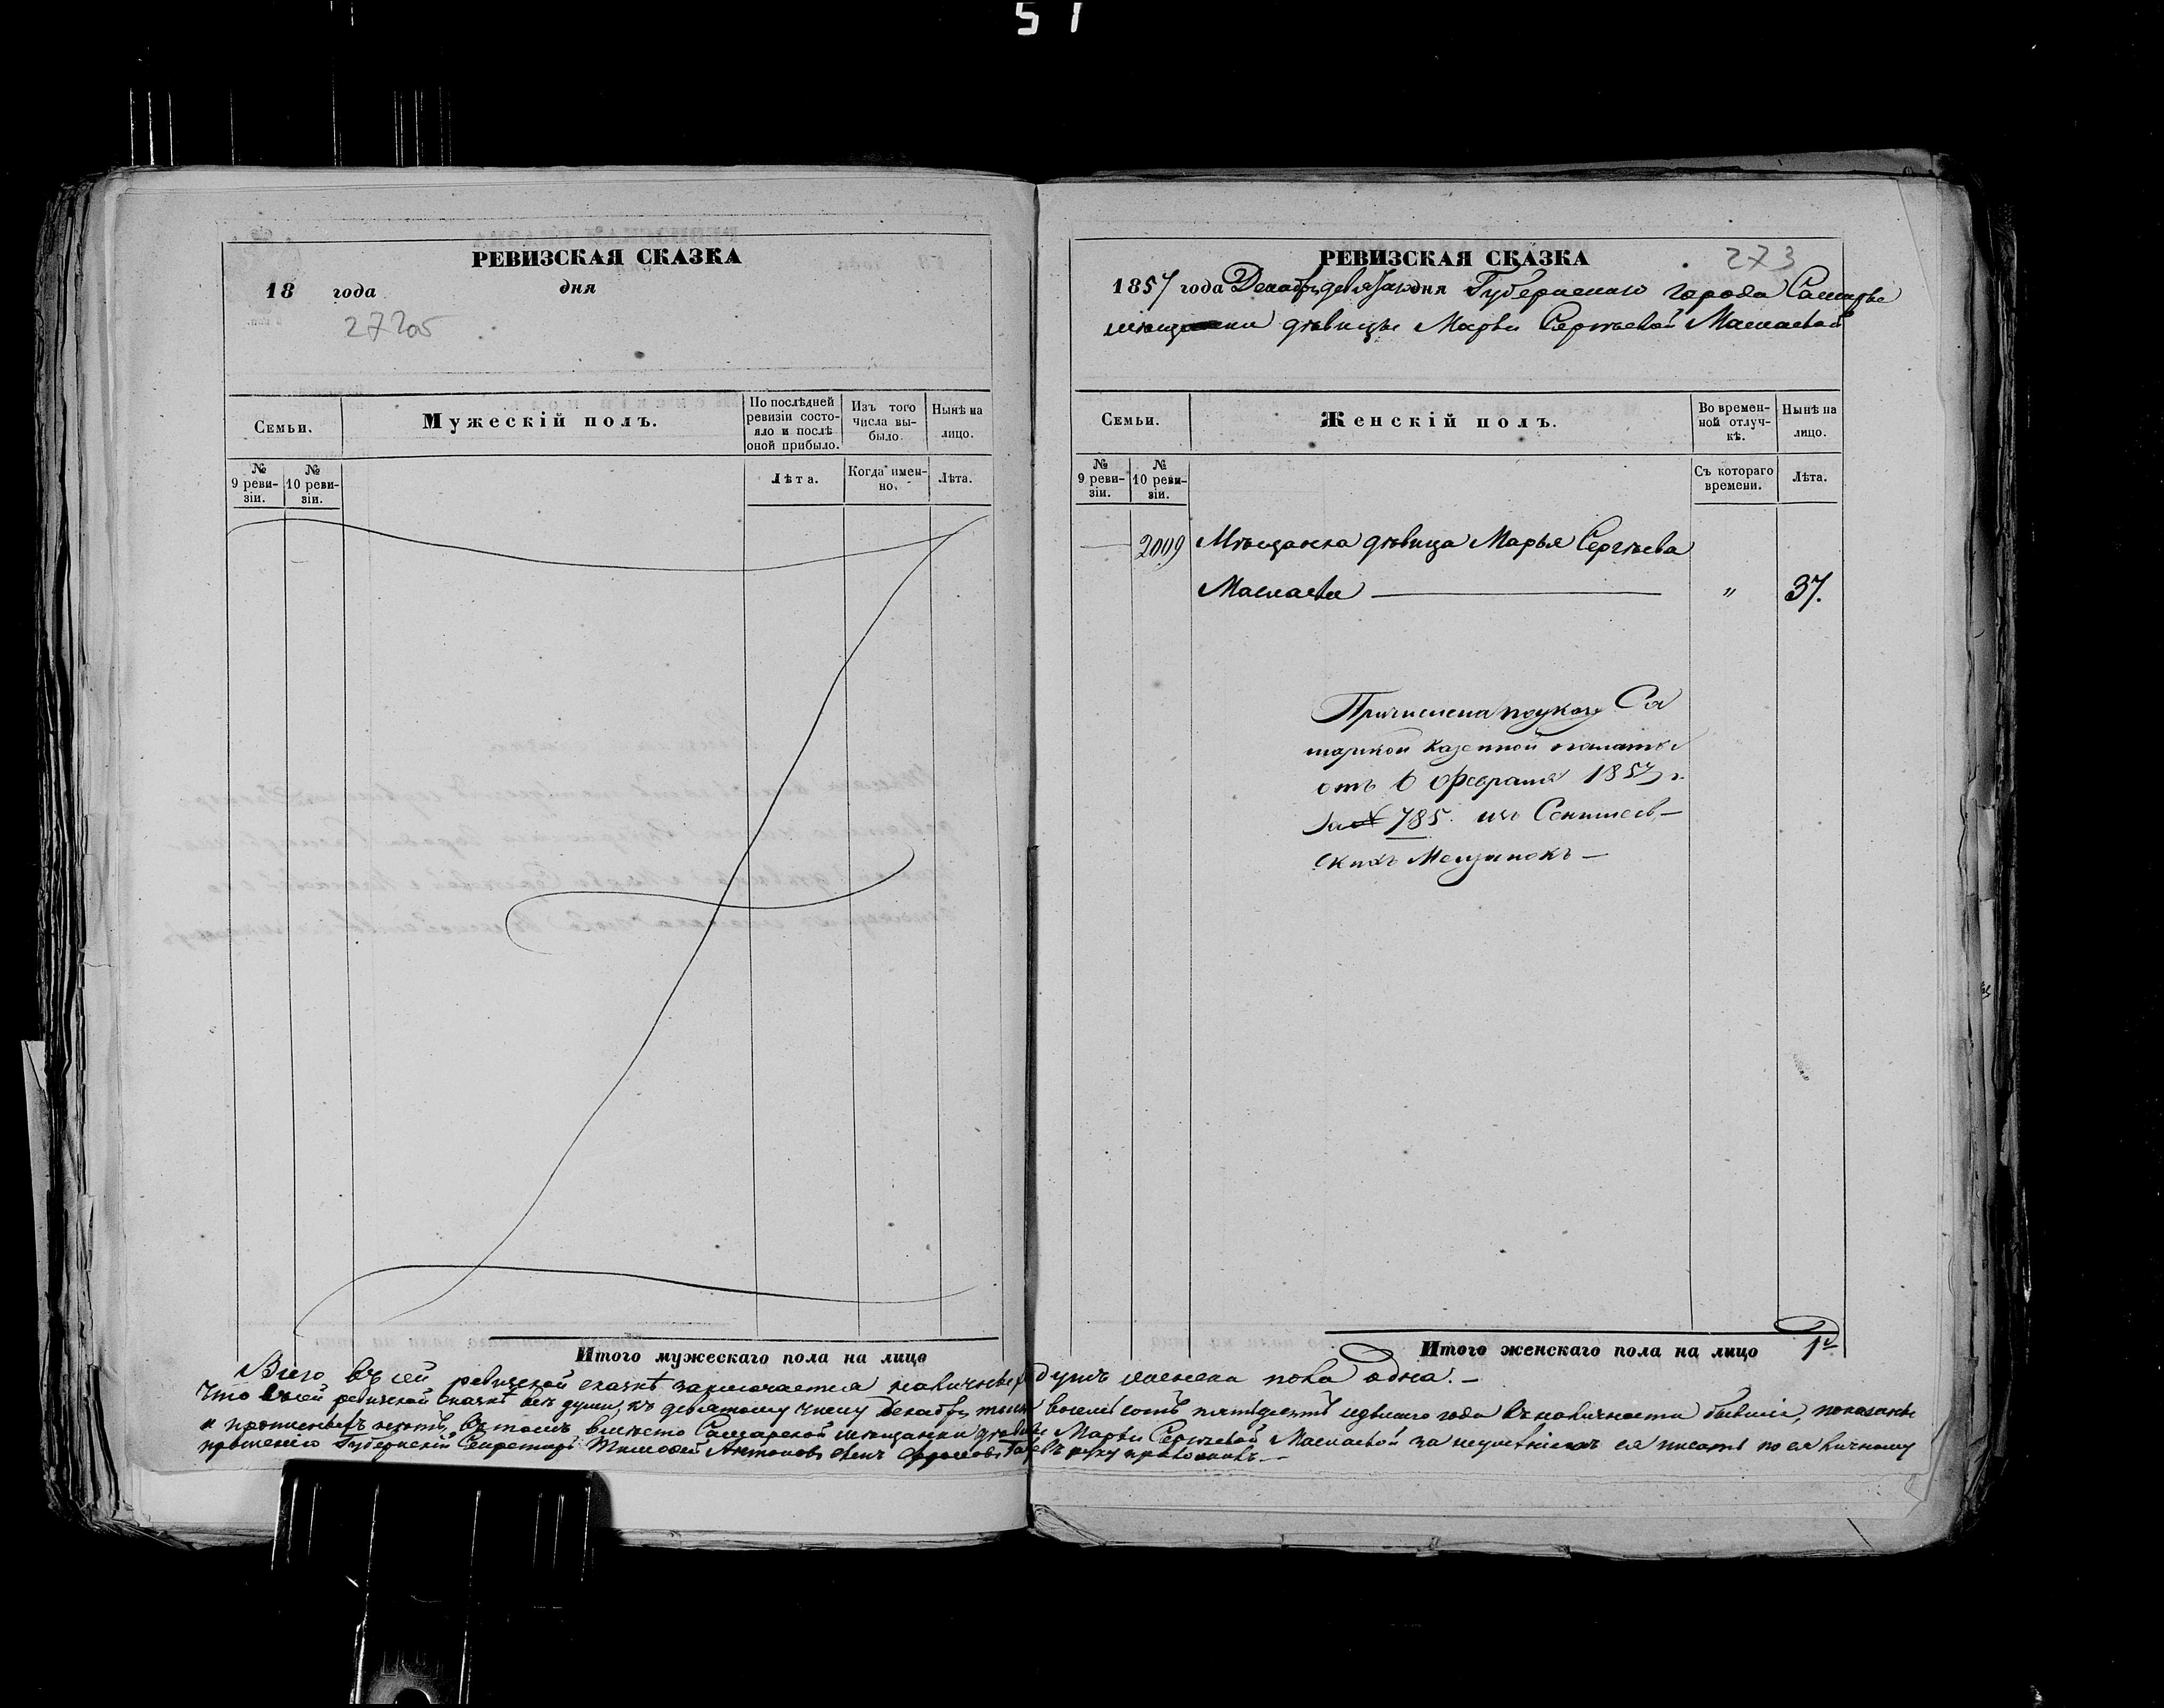 51
РЕВИЗСКАЯ СКАЗКА
18 года дня
27205
Семьи.
Мужескій полъ.
По послѣдней ревизіи состо-
яло и послѣ
оной прибыло.
Изъ того
числа вы-
было.
Нынѣ на
лицо.
№
9 реви-
зіи.
№
10 реви-
зіи.
Лѣта.
Когда имен-
но.
Лѣта.
Итого мужескаго пола на лицо
РЕВИЗСКАЯ СКАЗКА
273
1857 года Декабря девятаго дня Губернскаго города Самары
мѣщанки дѣвицы Марьи Сергѣевой Маслаевой
Семьи.
Женскій полъ.
Во времен-
ной отлуч-
кѣ.
Нынѣ на
лицо.
№
9 реви-
зіи.
№
10 реви-
зіи.
Съ котораго
времени.
Лѣта.
— 2009 Мѣщанка дѣвица Марья Сергѣева
Маслаева — „ 37.
Причислена по указу Са
марской Казенной палаты
отъ 6 Февраля 1857 г.
за № 785. изъ
скихъ Мещанокъ —
Итого женскаго пола на лицо 1
Всего въ сей ревизской сказкѣ заключается наличныхъ душъ женска пола одна. —
Что въ сей ревизской сказкѣ всѣ души, къ девятому числу Декабря тысяча восемь сотъ пятьдесятъ седьмаго года въ наличности бывшіе, показаны
и прописныхъ нетъ, въ томъ вмѣсто Самарской мѣщанки дѣвицы Марьи Сергѣевой Маслаевой за неумѣніемъ ея писать по ея личному
прошенію Губернскій Секретарь Тимофей Антоновъ сынъ руку приложилъ. —